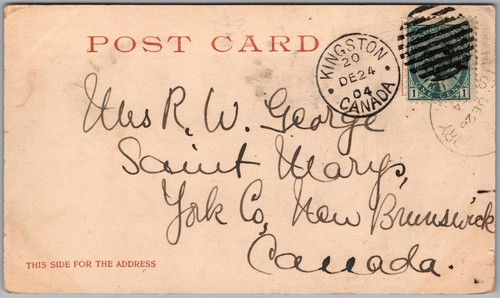 POST CARD
KINGSTON
20
DE 24
04
CANADA
ONE CENT
1 1
Mrs R. W. George
Saint Marys,
York Co, New Brunswick
Canada.
THIS SIDE FOR THE ADDRESS